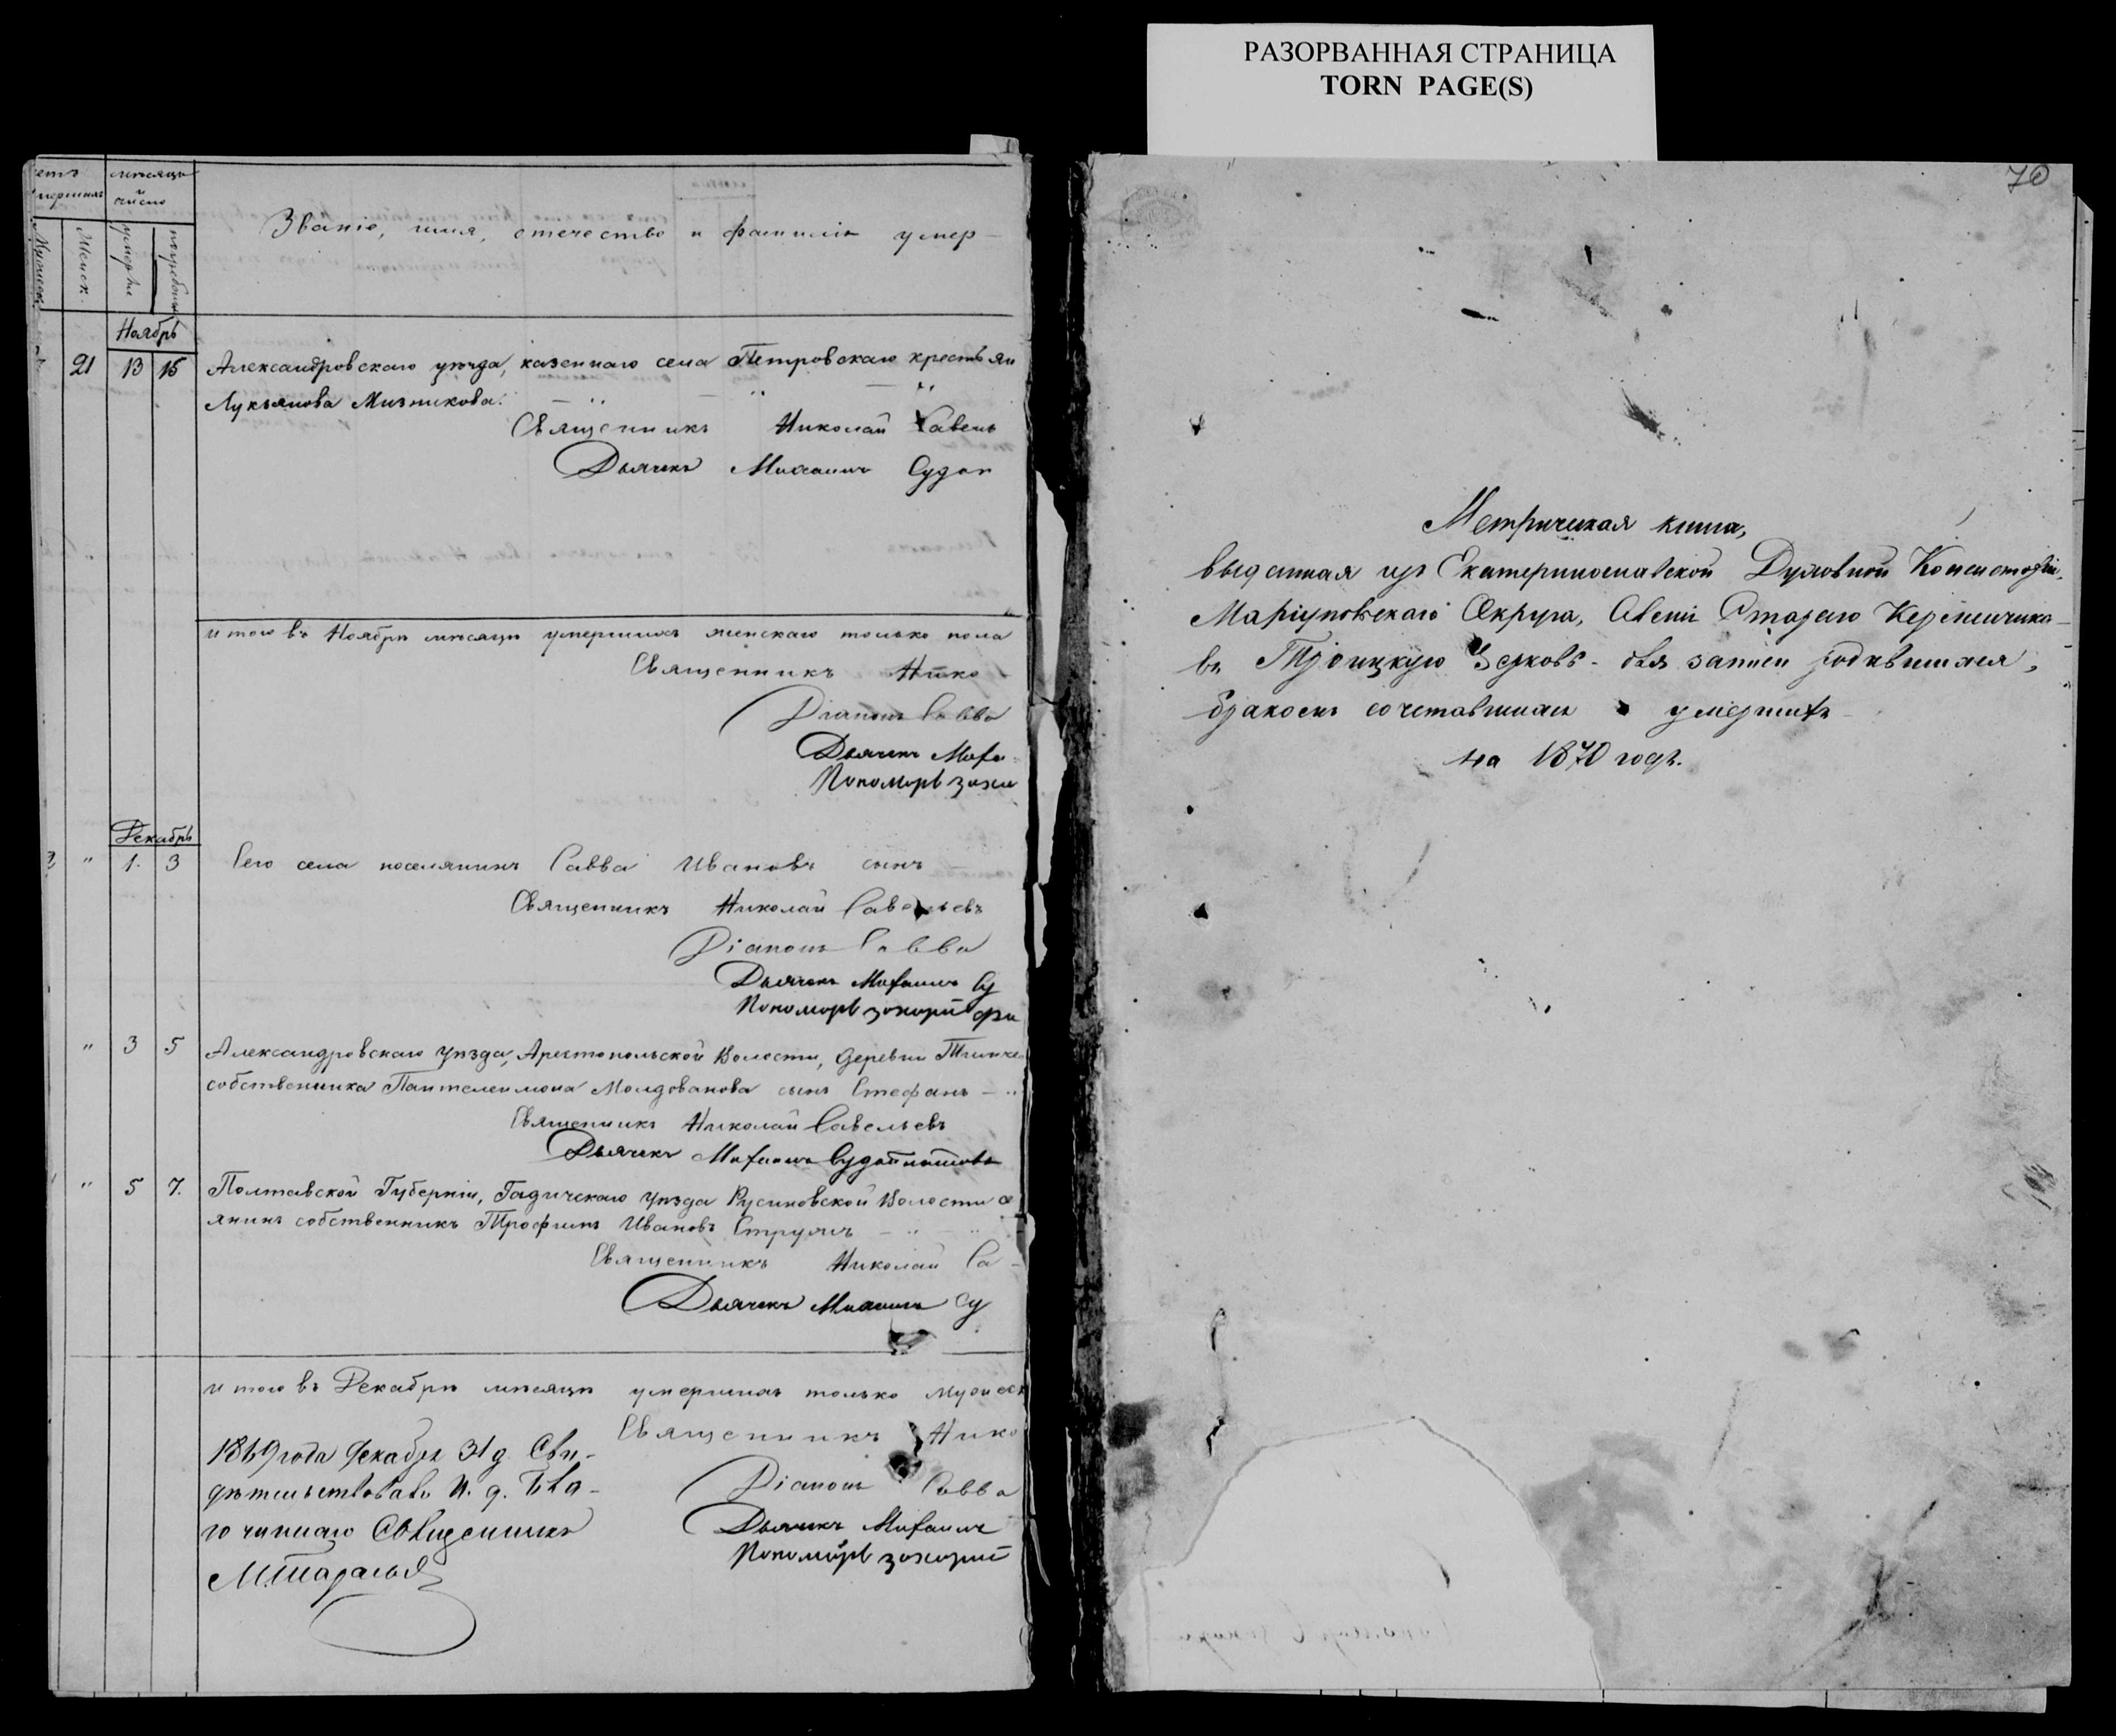 РАЗОРВАННАЯ СТРАНИЦА
TORN PAGE(S)
70
мѣсяцъ
и
число
Женск.
Званіе, имя, отечество и фамилія умер-
Ноябрь
21 13 15 Александровскаго уѣзда, казеннаго села Петровскаго крестьян
Лукьянова Мизникова.
Священникъ Николай Савель
Дьячекъ Михаилъ Судак
итого въ Ноябрѣ мѣсяцѣ умершихъ женскаго только пола
Священникъ Нико
Діаконъ Савва
Дьячекъ Миха
Пономарь Заха
Декабрь
" 1. 3 Сего села поселянинъ Савва Ивановъ сынъ
Священникъ Николай Савельевъ
Діаконъ Савва
Дьячекъ Михаилъ Су
Пономарь Захарій
" 3 5 Александровскаго Уѣзда, Волости, деревни
собственника Пантелеимона Молдованова сынъ Стефанъ
Священникъ Николай Савельевъ
Дьячекъ Михаилъ
" 5 7. Полтавской Губерніи, Гадячскаго Уѣзда Русиновской Волости
янинъ собственникъ Трофимъ Ивановъ
Священникъ Николай Са-
Дьячекъ Михаилъ Су
итого въ Декабрѣ мѣсяцѣ умершихъ только Мужеск
Священникъ Нико
Діаконъ Савва
Дьячекъ Михаилъ
Пономарь Захарій
1869 года Декабря 31 д. Сви-
дѣтельствовалъ И. д. Бла-
гочиннаго Священникъ
Метрическая книга,
выданная изъ Екатеринославской Духовной Консисторіи,
Маріупольскаго Округа, Стараго Керменчика
въ Троицкую Церковь для записи родившихся,
бракомъ сочетавшихся и умершихъ
на 1870 годъ.